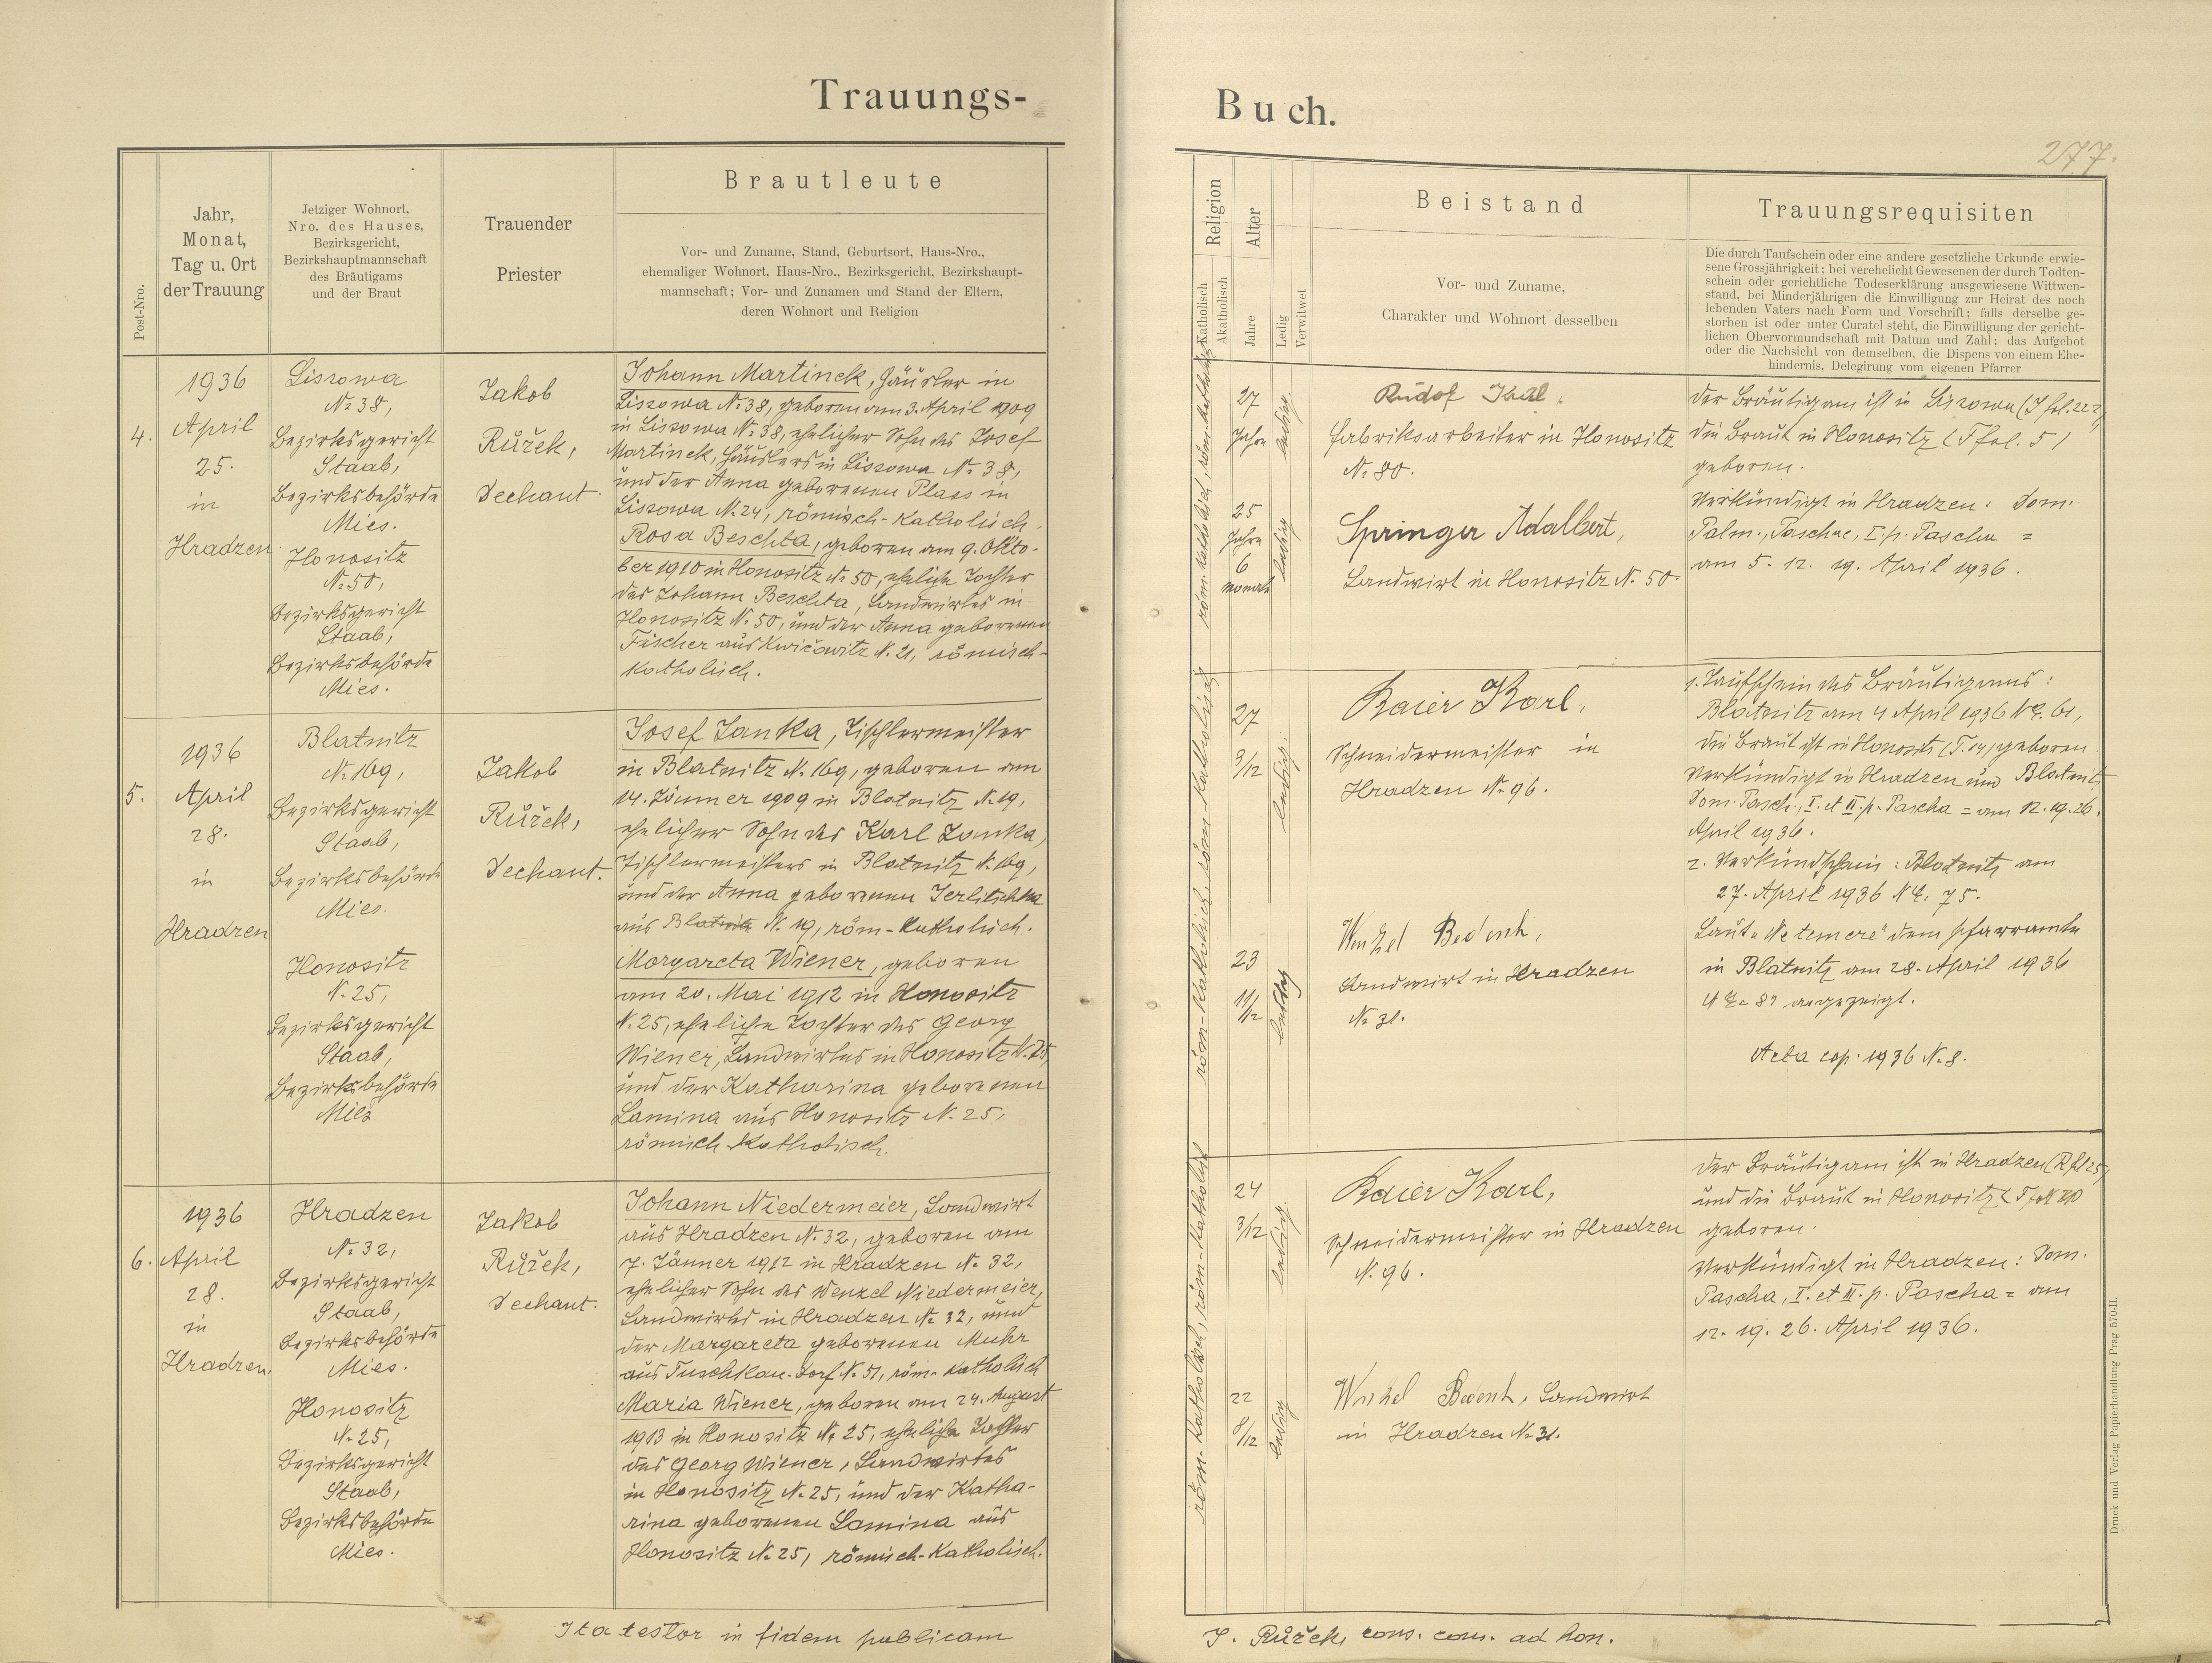 Trauungs-
Post-Nro.
Jahr,
Monat,
Tag u. Ort
der Trauung
Jetziger Wohnort,
Nro. des Hauses,
Bezirksgericht,
Bezirkshauptmannschaft
des Bräutigams
und der Braut
Trauender
Priester
Brautleute
Vor- und Zuname, Stand, Geburtsort, Haus-Nro.,
ehemaliger Wohnort, Haus-Nro., Bezirksgericht, Bezirkshaupt-
mannschaft; Vor- und Zunamen und Stand der Eltern,
deren Wohnort und Religion
4.
1936
April
25.
in
Hradzen
Lissowa
No 38,
Bezirksgericht
Staab,
Bezirksbehörde
Mies.
Honositz
No 50,
Bezirksgericht
Staab,
Bezirksbehörde
Mies.
Jakob
Růžek,
Dechant.
Johann Martinek, Häusler in
Lissowa No 38, geboren am 3. April 1909
in Lissowa No 38, ehelicher Sohn des Josef
Martinek, Häuslers in Lissowa No 38,
und der Anna geborenen Plass in
Lissowa N. 24, römisch-katholisch.
Rosa Beschta, geboren am 9. Okto-
ber 1910 in Honositz No 50, eheliche Tochter
des Johann Beschta, Landwirtes in
Honositz N. 50, und der Anna geborenen
Fischer aus Kwičowitz N. 21, römisch-
katholisch.
5.
1936
April
28.
in
Hradzen
Blatnitz
No 169,
Bezirksgericht
Staab,
Bezirksbehörde
Mies.
Honositz
N. 25,
Bezirksgericht
Staab,
Bezirksbehörde
Mies
Jakob
Růžek,
Dechant.
Josef Janka, Tischlermeister
in Blatnitz N. 169, geboren am
14. Jänner 1909 in Blatnitz N. 19,
ehelicher Sohn des Karl Janka,
Tischlermeisters in Blatnitz N. 169,
und der Anna geborenen Jerlitschka
aus Blatnitz N. 19, röm-katholisch.
Margareta Wiener, geboren
am 20. Mai 1912 in Honositz
N. 25, eheliche Tochter des Georg
Wiener, Landwirtes in Honositz N. 25,
und der Katharina geborenen
Lamina aus Honositz N. 25,
römisch-katholisch.
6.
1936
April
28.
in
Hradzen.
Hradzen
No 32,
Bezirksgericht
Staab,
Bezirksbehörde
Mies.
Honositz
N. 25,
Bezirksgericht
Staab,
Bezirksbehörde
Mies.
Jakob
Růžek,
Dechant.
Johann Niedermeier, Landwirt
aus Hradzen N. 32, geboren am
7. Jänner 1912 in Hradzen No 32,
ehelicher Sohn des Wenzel Niedermeier,
Landwirtes in Hradzen No 32, und
der Margareta geborenen Muhr
aus Tuschkau-Dorf N. 51, röm-katholisch
Maria Wiener, geboren am 24. August
1913 in Honositz No 25, eheliche Tochter
des Georg Wiener, Landwirtes
in Honositz N. 25, und der Katha-
rina geborenen Lamina aus
Honositz No 25, römisch-katholisch.
Ita testor in fidem publicam
Buch.
277.
Religion
Katholisch
Akatholisch
Alter
Jahre
Ledig
Verwitwet
Beistand
Vor- und Zuname,
Charakter und Wohnort desselben
Trauungsrequisiten
Die durch Taufschein oder eine andere gesetzliche Urkunde erwie-
sene Grossjährigkeit; bei verehelicht Gewesenen der durch Todten-
schein oder gerichtliche Todeserklärung ausgewiesene Wittwen-
stand, bei Minderjährigen die Einwilligung zur Heirat des noch
lebenden Vaters nach Form und Vorschrift; falls derselbe ge-
storben ist oder unter Curatel steht, die Einwilligung der gericht-
lichen Obervormundschaft mit Datum und Zahl; das Aufgebot
oder die Nachsicht von demselben, die Dispens von einem Ehe-
hindernis, Delegirung vom eigenen Pfarrer
röm-katholisch, röm-katholisch
27
Jahre
ledig
25
Jahre
6
Monate
ledig
Rudolf
Fabriksarbeiter in Honositz
No 80.
Springer Adalbert,
Landwirt in Honositz N. 50.
Der Bräutigam ist in Lissowa (J fol. 222)
die Braut in Honositz (T fol. 5)
geboren.
Verkündigt in Hradzen: Dom.
Palm., Paschae, I. p. Pascha =
am 5. 12. 19. April 1936.
röm-katholisch, röm-katholisch
27
3/12
ledig.
23
11/12
ledig
Baier Karl,
Schneidermeister in
Hradzen No 96.
Wenzel
Landwirt in Hradzen
No 31.
1. Taufschein des Bräutigams:
Blatnitz am 4 April 1936 NE. 61,
die Braut ist in Honositz (T. 14) geboren.
Verkündigt in Hradzen und Blatnitz
Dom. Pasch., I. et II. p. Pascha = am 12. 19. 26.
April 1936.
2. Verkündschein: Blatnitz am
27. April 1936 NE. 75.
Laut „Ne temere" dem Pfarramte
in Blatnitz am 28. April 1936
angezeigt.
Acta cop. 1936 No 8.
röm-katholisch, röm-katholisch
24
3/12
ledig.
22
8/12
ledig
Baier Karl,
Schneidermeister in Hradzen
N. 96.
Wenzel
Landwirt
in Hradzen No 31.
Der Bräutigam ist in Hradzen
und die Braut in Honositz
geboren.
Verkündigt in Hradzen: Dom.
Pascha, I. et II. p. Pascha = am
12. 19. 26. April 1936.
J. Růžek, cons. com. ad hon.
Druck und Verlag Papierhandlung Prag 570-II.